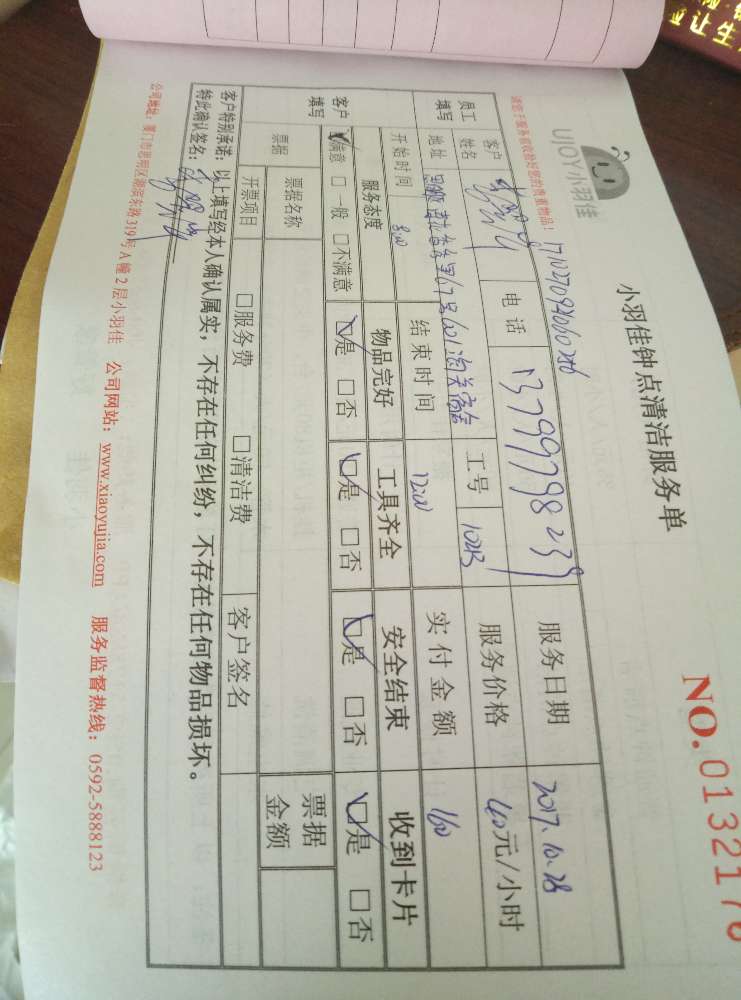 小羽佳钟点清洁服务单
NO.0132176
UJOY小羽佳
请您于服务前收拾好您的贵重物品!
员工填写
客户姓名
电话 13799798239
服务日期 2017.10.28
地址
工号
服务价格 40元/小时
开始时间
结束时间 1200
实付金额 160
客户填写
服务态度 物品完好 工具齐全 安全结束 收到卡片
☑满意 □一般 □不满意 ☑是 □否 ☑是 □否 ☑是 □否 ☑是 □否
票据
票据名称
票据金额
开票项目 □服务费 □清洁费 客户签名
客户特别承诺:以上填写经本人确认属实,不存在任何纠纷,不存在任何物品损坏。
特此确认签名:
公司地址:厦门市思明区湖滨东路319号A幢2层小羽佳 公司网站:www.xiaoyujia.com 服务监督热线:0592-5888123